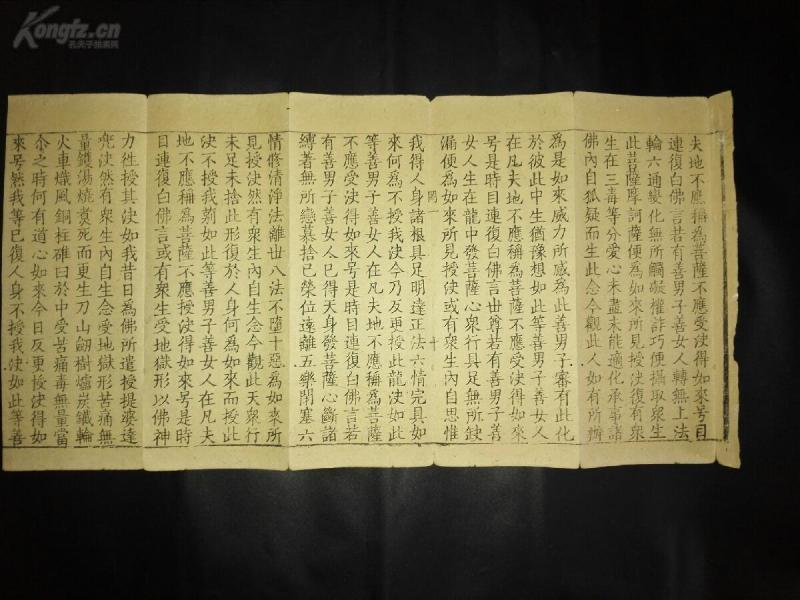 Kongfz.cn
孔夫子拍卖网
夫地不應稱為菩薩不應受決得如來号目
連復白佛言若有善男子善女人轉無上法
輪六通變化無所罽礙權詐巧便攝取眾生
此菩薩摩訶薩便為如來所見授決復有眾
生在三毒等分愛心未盡未能適化承事諸
佛內自狐疑而生此念今觀此人如有所辦
為是如來威力所感為此善男子審有此化
於彼此中生猶豫想如此等善男子善女人
在凡夫地不應稱為菩薩不應受決得如來
号是時目連復白佛言世尊若有善男子善
女人生在龍中發菩薩心眾行具足無所缺
漏便為如來所見授決或有眾生內自思惟
我得人身諸根具足明達正法六情完具如
來何為不授我決今乃反更授此龍決如此
等善男子善女人在凡夫地不應稱為菩薩
不應受決得如來号是時目連復白佛言若
有善男子善女人已得天身發菩薩心斷諸
縛著無所戀慕捨已榮位遠離五樂閉塞六
情修清淨法離世八法不墮十惡為如來所
見授決然有眾生內自生念今觀此天眾行
未足未捨此形復於人身何為如來而授此
決不授我莂如此等善男子善女人在凡夫
地不應稱為菩薩不應授決得如來号是時
目連復白佛言或有眾生受地獄形以佛神
力往授其決如我昔日為佛所遣授提婆達
兜決然有眾生內自生念受地獄形苦痛無
量鑊湯燒煑死而更生刀山劒樹爐炭鐵輪
火車熾風銅柱碓臼於中受苦痛毒無量當
尒之時何有道心如來今日反更授決得如
來号然我等已復人身不授我決如此等善